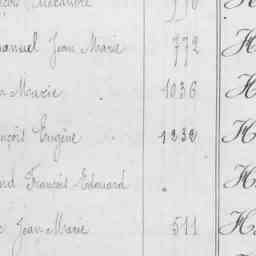 Alexandre 570 H
manuel Jean Marie 772 H
Marie 1036 H
ançois Eugène 1232 H
François Edouard H
Jean Marie 511 H